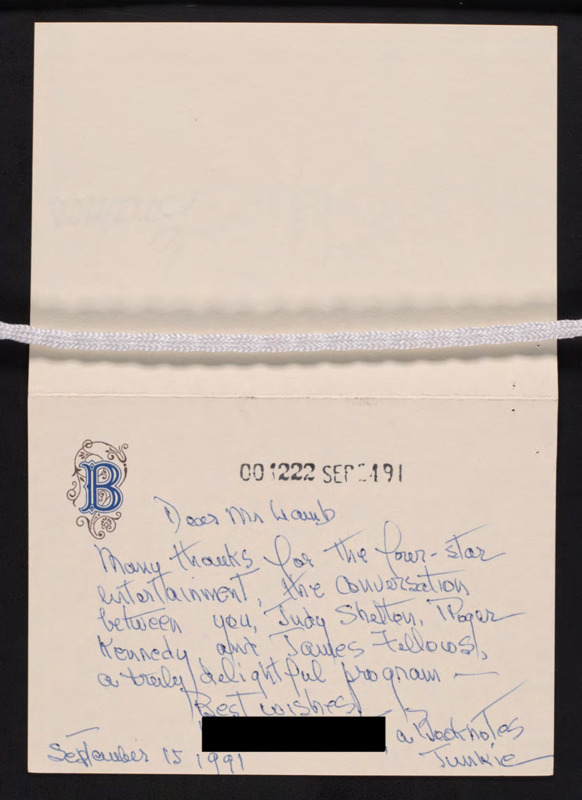 B
001222 SEP 24 91
Dear Mr Lamb
Many thanks for the four-star
entertainment, the conversation
between you, Judy Shelton, Roger
Kennedy and James Fellows,
a truly delightful program —
Best wishes
a Booknotes
Junkie
September 15 1991